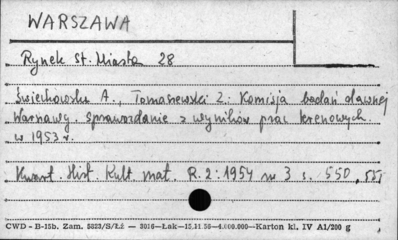 WARSZAWA
Rynek St. Miasta 28
Świechowska A., Tomaszewski Z. Komisja badań dawnej
Warszawy. Sprawozdanie z wyników prac terenowych.
w 1953 r.
Kwart. Hist. Kult mat. R. 2: 1954 nr 3 s. 550, 555
CWD - B-15b. Zam. 5323/S/Łź — 3016—Łak—15.11 52—4.000.000—Karton kl. IV A1/200 g